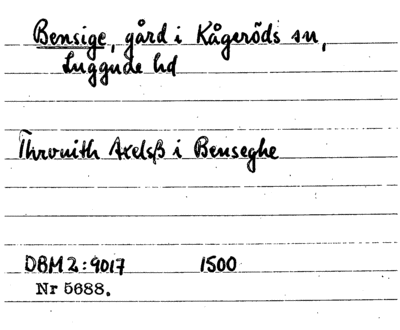 Bensige, gård i Kågeröds sn,
Luggude hd
Thronith Axelsß i Benseghe
DBM 2:9017 1500
Nr 5688.